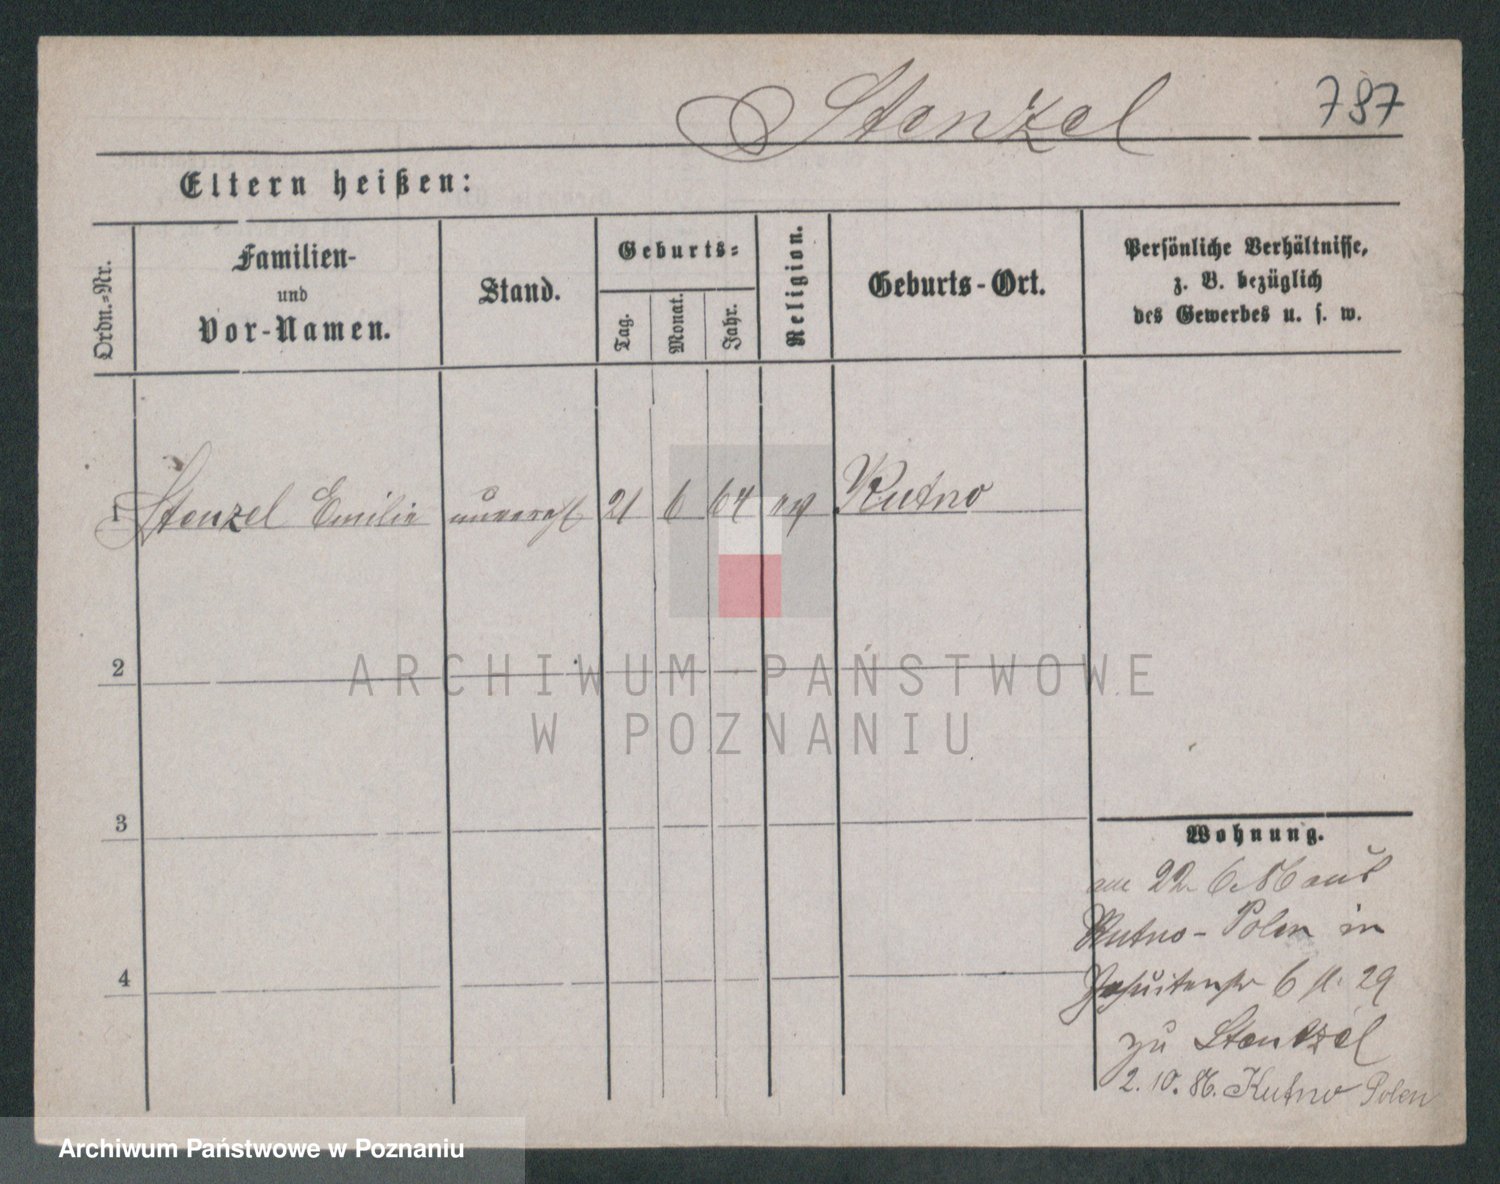 Stenzel 787
Eltern heißen:
Ordn.-Nr.
Familien-
und
Vor-Namen.
Stand.
Geburts-
Tag.
Monat.
Jahr.
Religion.
Geburts-Ort.
Persönliche Verhältnisse,
z. B. bezüglich
des Gewerbes u. s. w.
1 Stenzel Emilie unvereh 21 6 64 ev Kutno
2
3
4
ARCHIWUM PAŃSTWOWE
W POZNANIU
Wohnung.
am 22. 6. 86 aus
Kutno - Polen in
Jesuitenstr 6 29
zu Stentzel
2. 10. 86. Kutno Polen
Archiwum Państwowe w Poznaniu